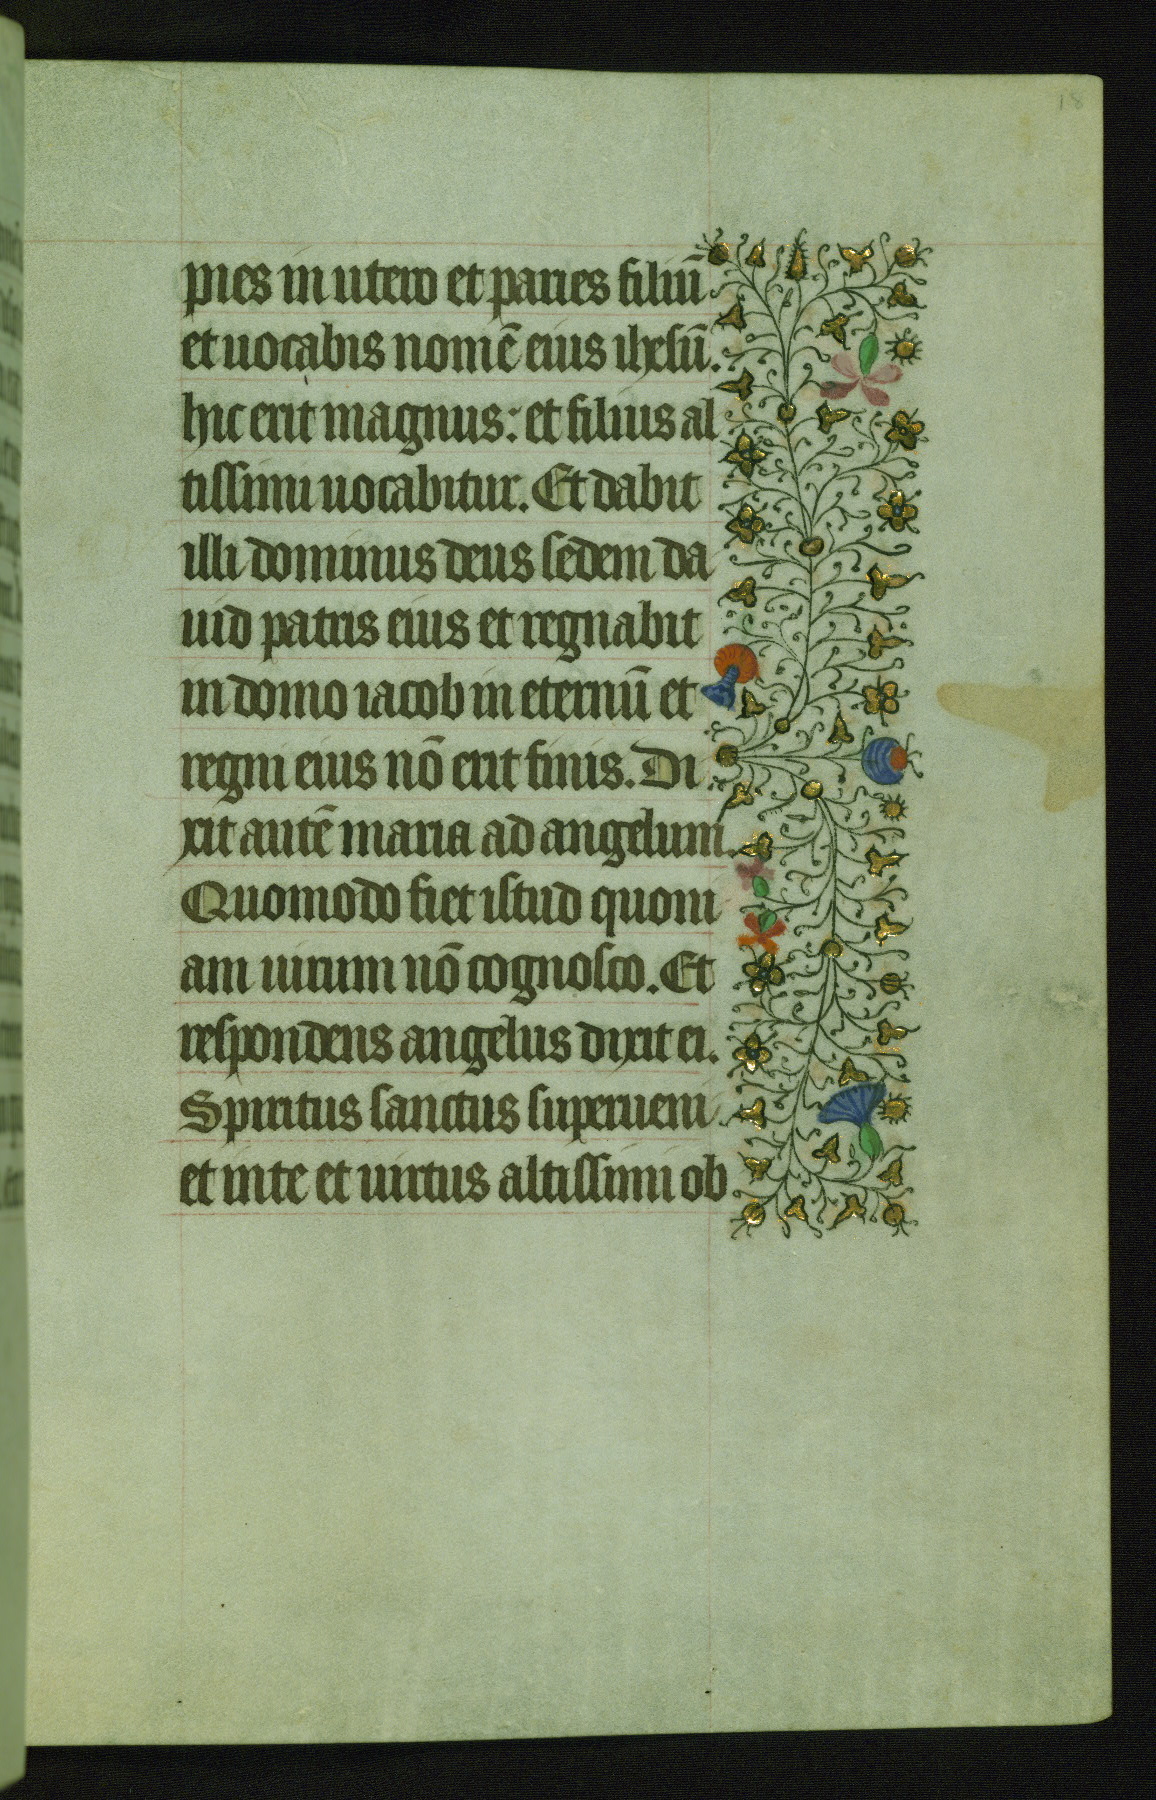 18
pies in utero et paries filiū
et uocabis nomē eius ihesū.
hic erit magnus: et filius al
tissimi uocabitur. Et dabit
illi dominus deus sedem da
uid patris eius et regnabit
in domo iacob in eternū et
regni eius nō erit finis. Di
xit autē maria ad angelum.
Quomodo fiet istud quoni
am uirum nō cognosco. Et
respondens angelus dixit ei.
Spiritus sanctus superueni
et in te et uirtus altissimi ob